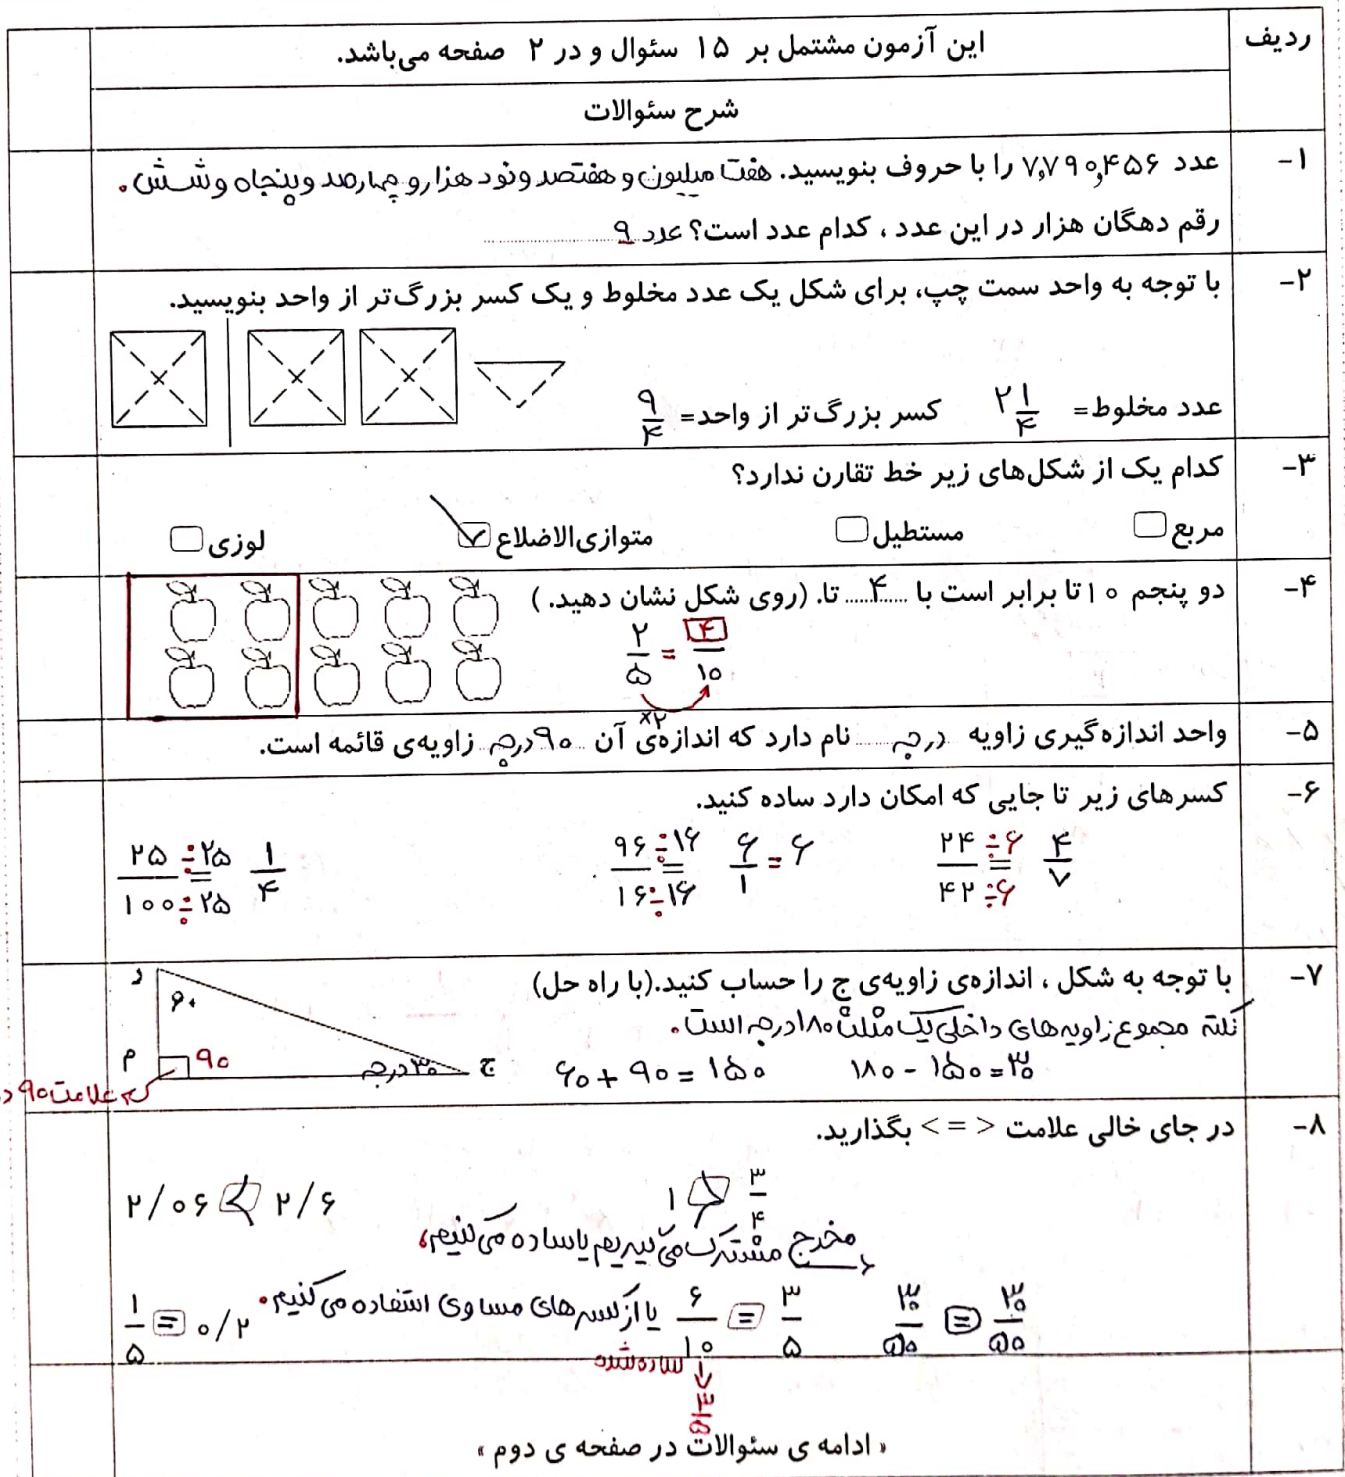 ردیف
این آزمون مشتمل بر ۱۵ سئوال و در ۲ صفحه می‌باشد.
شرح سئوالات
۱- عدد ۷,۷۹۰,۴۵۶ را با حروف بنویسید. هفت میلیون و هفتصد و نود هزار و چهارصد و پنجاه و شش.
رقم دهگان هزار در این عدد ، کدام عدد است؟ عدد ۹
۲- با توجه به واحد سمت چپ، برای شکل یک عدد مخلوط و یک کسر بزرگ‌تر از واحد بنویسید.
عدد مخلوط= ۲ ۱/۴ کسر بزرگ‌تر از واحد= ۹/۴
۳- کدام یک از شکل‌های زیر خط تقارن ندارد؟
مربع مستطیل متوازی‌الاضلاع لوزی
۴- دو پنجم ۱۰ تا برابر است با ۴ تا. (روی شکل نشان دهید. )
۲/۵ = ۴/۱۰
×۲
۵- واحد اندازه‌گیری زاویه درجه نام دارد که اندازه‌ی آن ۹۰ درجه زاویه‌ی قائمه است.
۶- کسرهای زیر تا جایی که امکان دارد ساده کنید.
۲۴÷۶/۴۲÷۶ = ۴/۷
۹۶÷۱۶/۱۶÷۱۶ = ۶/۱ = ۶
۲۵÷۲۵/۱۰۰÷۲۵ = ۱/۴
۷- با توجه به شکل ، اندازه‌ی زاویه‌ی ج را حساب کنید.(با راه حل)
نکته مجموع زاویه‌های داخلی یک مثلث ۱۸۰ درجه است.
۶۰ + ۹۰ = ۱۵۰ ۱۸۰ - ۱۵۰ = ۳۰
د
۶۰
م ۹۰ ۳۰ درجه ج
علامت ۹۰
۸- در جای خالی علامت < = > بگذارید.
۱ > ۳/۴
۲/۰۶ < ۲/۶
مخرج مشترک می‌گیریم یا ساده می‌کنیم،
۳۰/۵۰ = ۳۰/۵۰
۶/۱۰ = ۳/۵
یا از کسرهای مساوی استفاده می‌کنیم.
۱/۵ = ۰/۲
ساده شده
۳/۵
« ادامه ی سئوالات در صفحه ی دوم »